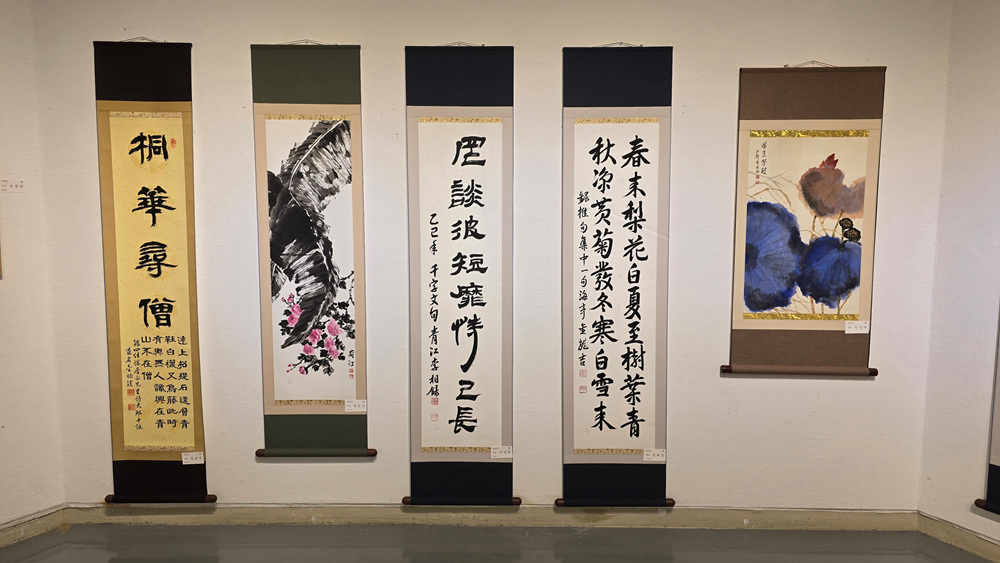 桐華尋僧
遠上招提石逕層青
鞋白襪又烏藤此時
有興無人識興在青
山不在僧
罔談彼短靡恃己長
乙巳年 千字文句 青江李相
春来梨花白夏至樹葉青
秋凉黃菊發冬寒白雪来
錄推句集中一句海亭金龍吉